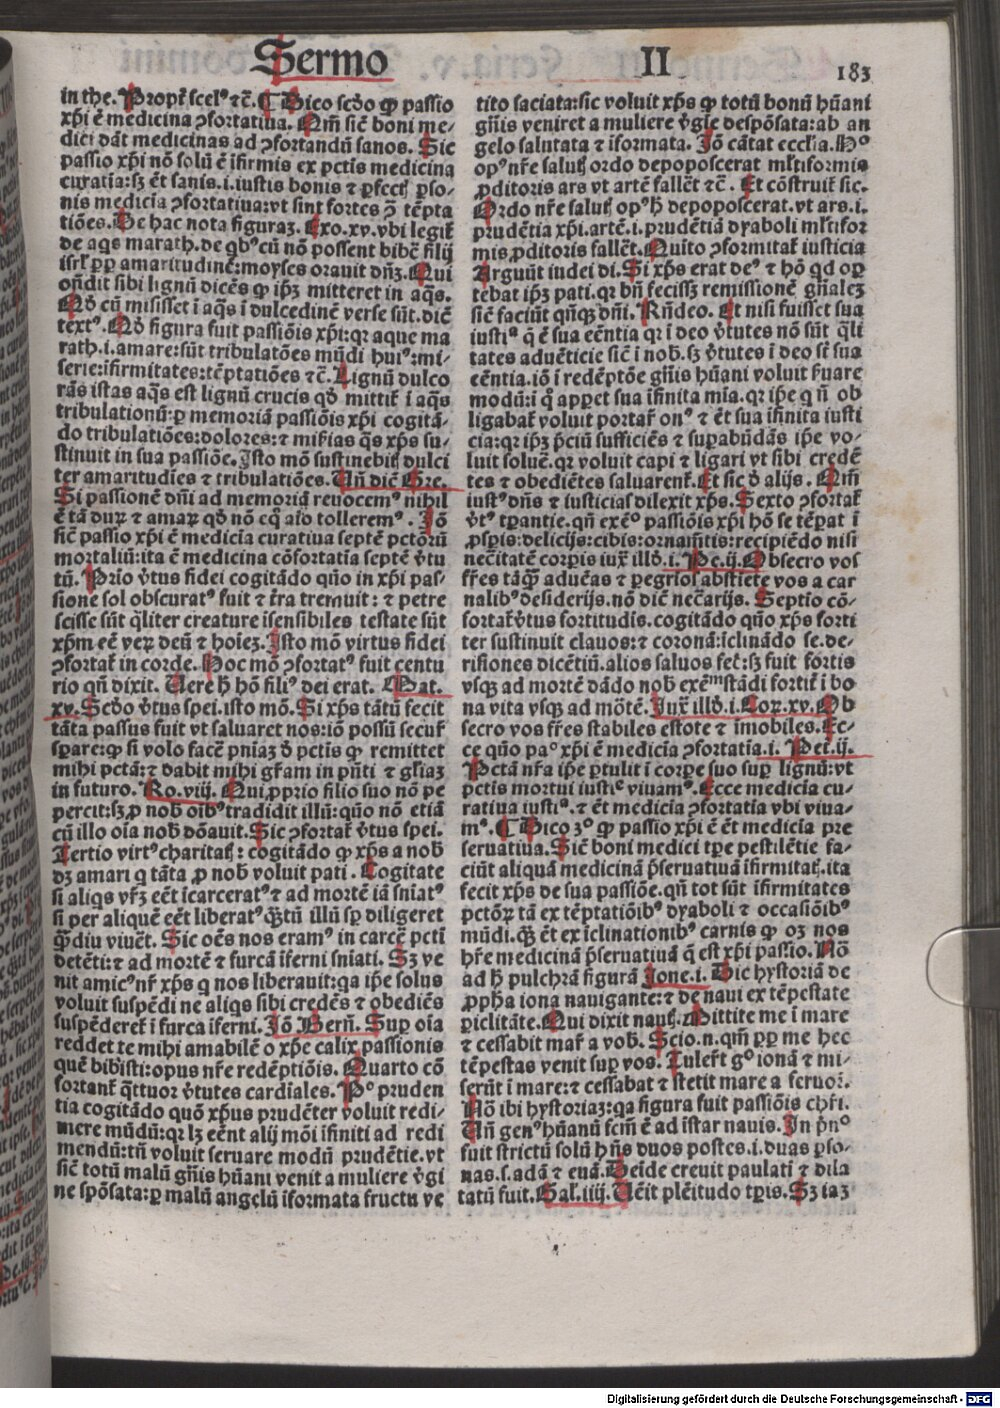 Sermo II 183
in the. Propt̄ scel⁹ ⁊c̄. ¶ Dico scd̄o ꝙ passio
xp̄i ē medicina ↄfortatiua. Nm̄ sic̄ boni me-
dici dāt medicinas ad ↄfortandū sanos. Sic
passio xp̄i nō solū ē īfirmis ex pctīs medicina
curatia: sꝫ ēt sanis .i. iustis bonis ⁊ ꝑfect̄ ꝑso-
nis medicīa ↄfortatiua: vt sint fortes ↄ̄ tēpta
tiōes. De hac nota figuraꝫ. Exo. xv. vbi legit̄
de aq̄s marath. de qb⁹ cū nō possent bibē filij
isrl̄ ꝓp̄ amaritudinē: moyses orauit dn̄ꝫ. Qui
oñdit sibi lignū dicēs ꝙ ip̄ꝫ mitteret in aq̄s.
Qd̄ cū misisset ī aq̄s ī dulcedinē verse sūt. dic̄
text⁹. Qd̄ figura fuit passiōis xp̄i: qꝛ aque ma
rath .i. amare: sūt tribulatōes mūdi hui⁹: mi-
serie: īfirmitates: tēptatiōes ⁊c̄. Lignū dulco
rās istas aq̄s est lignū crucis qd̄ mittit̄ ī aq̄s
tribulationū: ꝑ memoriā passiōis xp̄i cogitā-
do tribulatiōes: dolores: ⁊ mīrias q̄s xp̄s su-
stinuit in sua passiōe. Isto mō sustinebit̄ dulci
ter amaritudīes ⁊ tribulatiōes. Un̄ dic̄ Gre.
Si passionē dn̄i ad memoriā reuocem⁹ nihil
ē tā duꝝ ⁊ amaꝝ qd̄ nō eq̄ aīo tollerem⁹. Iō
sic̄ passio xp̄i ē medicīa curatiua septē pctōrū
mortaliū: ita ē medicina cōfortatia septē v̄tu
tū. Prīo v̄tus fidei cogitādo quō in xp̄i pas-
sione sol obscurat⁹ fuit ⁊ t̄ra tremuit: ⁊ petre
scisse sūt q̄liter creature īsensibiles testate sūt
xp̄m eē veꝝ deū ⁊ hoīeꝫ. Isto mō virtus fidei
ↄfortat̄ in corde. Hoc mō ↄfortat⁹ fuit centu
rio qn̄ dixit. Uere h̄ hō fili⁹ dei erat. Mat.
xv. Scd̄o v̄tus spei. isto mō. Si xp̄s tātū fecit
tāta passus fuit vt saluaret nos: iō possū secur̄
sꝑare: ꝙ si volo facē pn̄iaꝫ d̄ pctīs ꝙ remittet
mihi pctā: ⁊ dabit mihi gr̄am in pn̄ti ⁊ gl̄iaꝫ
in futuro. Ro. viij. Qui ꝓprio filio suo nō pe
percit: sꝫ ꝓ nob̄ oīb⁹ tradidit illū: quō nō etiā
cū illo oīa nob̄ dōauit. Sic ↄfortat̄ v̄tus spei.
Tertio virt⁹ charitat̄: cogitādo ꝙ xp̄s a nob̄
dꝫ amari q tāta ꝓ nob̄ voluit pati. Cogitate
si aliqs vr̄ꝫ eēt īcarcerat⁹ ⁊ ad mortē iā sniat⁹
si per aliquē eēt liberat⁹ q̄ꝫtū illū sꝑ diligeret
q̄ꝫdiu viuēt. Sic oēs nos eram⁹ in carcē pctī
detēti: ⁊ ad mortē ⁊ furcā īferni sniati. Sꝫ ve
nit amic⁹ nr̄ xp̄s q nos liberauit: qa ip̄e solus
voluit suspēdi ne aliqs sibi credēs ⁊ obediēs
suspēderet̄ ī furca īferni. Iō Bern̄. Sup oīa
reddet te mihi amabilē o xp̄e calix passionis
quē bibisti: opus nr̄e redēptiōis. Quarto cō
fortant̄ q̄ttuor v̄tutes cardīales. P⁰ pruden
tia cogitādo quō xp̄us prudēter voluit redi-
mere mūdū: qꝛ lꝫ eēnt alij mōi īfiniti ad redi
mendū: tn̄ voluit seruare modū prudētie. vt
sic̄ totū malū gn̄is hūani venit a muliere v̄gi
ne spōsata: ꝑ malū angelū īformata fructu ve
tito saciata: sic voluit xp̄s ꝙ totū bonū hūani
gn̄is veniret a muliere v̄gīe despōsata: ab an
gelo salutata ⁊ īformata. Iō cātat ecclīa. H⁰
op⁹ nr̄e salut̄ ordo depoposcerat ml̄tiformis
ꝓditoris ars vt artē fallēt ⁊c̄. Et cōstruit̄ sic.
Ordo nr̄e salut̄ op⁹ h̄ depoposcerat. vt ars .i.
prudētia xp̄i. artē .i. prudētiā dyaboli ml̄tifor
mis ꝓditoris fallēt. Quīto ↄformat̄ iusticia
Arguūt iudei dī. Si xp̄s erat de⁹ ⁊ hō qd oꝑ
tebat ip̄ꝫ pati. qꝛ bn̄ fecissꝫ remissionē gn̄aleꝫ
sic̄ faciūt qn̄qꝫ dn̄i. Rn̄deo. Et nisi fuisset sua
iusti⁹ q̄ ē sua eēntia qꝛ ī deo v̄tutes nō sūt q̄li
tates aduēticie sic̄ ī nob̄. sꝫ v̄tutes ī deo st̄ sua
eēntia. iō ī redēptōe gn̄is hūani voluit ẜuare
modū: ī q̄ appet̄ sua īfinita mīa. qꝛ ip̄e q n̄ ob
ligabat̄ voluit portar̄ on⁹ ⁊ ēt sua īfinita iusti
cia: qꝛ ip̄ꝫ p̄ciū sufficiēs ⁊ suꝑabūdās ip̄e vo-
luit soluē. qꝛ voluit capi ⁊ ligari vt sibi credē
tes ⁊ obediētes saluarent̄. Et sic d̄ alijs. Nm̄
iust⁹ dn̄s ⁊ iusticias dilexit xp̄s. Sexto ↄfortat̄
v̄t⁹ tꝑantie. qn̄ exē⁰ passiōis xp̄i hō se tēꝑat ī
ꝓspis: delicijs: cibis: ornam̄tis: recipiēdo nisi
nec̄itatē corpis iux̄ illd̄ .i. Pe. ij. Obsecro vos
fr̄es tāqꝫ aduēas ⁊ ꝑegrīos abstiēte vos a car
nalib⁹ desiderijs. nō dic̄ nec̄arijs. Septio cō-
fortat̄ v̄tus fortitudis. cogitādo quō xp̄s forti
ter sustinuit clauos: ⁊ coronā: īclinādo se. de-
risiones dicētiū. alios saluos fec̄: sꝫ fuit fortis
vsqꝫ ad mortē dādo nob̄ exēᵐ stādi fortit̄ ī bo
na vita vsqꝫ ad mōtē. Iux̄ illd̄ .i. Coꝝ. xv. Ob
secro vos fr̄es stabiles estote ⁊ imobiles. Ec-
ce quō pa⁰ xp̄i ē medicīa ↄfortatia .i. Pet. ij.
Pctā nr̄a ip̄e ꝑtulit ī corꝑe suo sup lignū: vt
pctīs mortui iusti⁰ viuam⁹. Ecce medicīa cu-
ratiua iusti⁰. ⁊ ēt medicīa ↄfortatia vbi viua-
m⁹. ¶ Dico 3⁰ ꝙ passio xp̄i ē ēt medicīa pre
seruatiua. Sic̄ boni medici tꝑe pestilētie fa-
ciūt aliquā medicinā p̄seruatiuā īfirmitat̄. ita
fecit xp̄s de sua passiōe. qn̄ tot sūt īfirmitates
pctōꝝ tā ex tēptatiōib⁹ dyaboli ⁊ occasiōib⁹
mūdi. qꝫ ēt ex īclinationib⁹ carnis ꝙ oꝫ nos
hr̄e medicinā p̄seruatiuā q̄ est xp̄i passio. Nō
ad h̄ pulchrā figurā Ione. i. Dic hystoriā de
ꝓpħa iona nauigante: ⁊ de naui ex tēpestate
ꝑiclitāte. Qui dixit naut̄. Mittite me ī mare
⁊ cessabit mar̄ a vob̄. Scio .n. qm̄ ꝓp̄ me hec
tēpestas venit sup vos. Tulert̄ g⁰ ionā ⁊ mi-
serūt ī mare: ⁊ cessabat ⁊ stetit mare a feruoꝛ̄.
Nō ibi hystoriaꝫ: qa figura fuit passiōis chr̄i.
Un̄ gen⁹ hūanū scm̄ ē ad īstar nauis. In pn̄⁰
fuit strictū solū hn̄s duos postes .i. duas ꝑso-
nas .s. adā ⁊ euā. Deīde creuit paulati ⁊ dila
tatū fuit. Gal. iiij. Uēit plēitudo tꝑis. Sꝫ iaꝫ
Digitalisierung gefördert durch die Deutsche Forschungsgemeinschaft - DFG